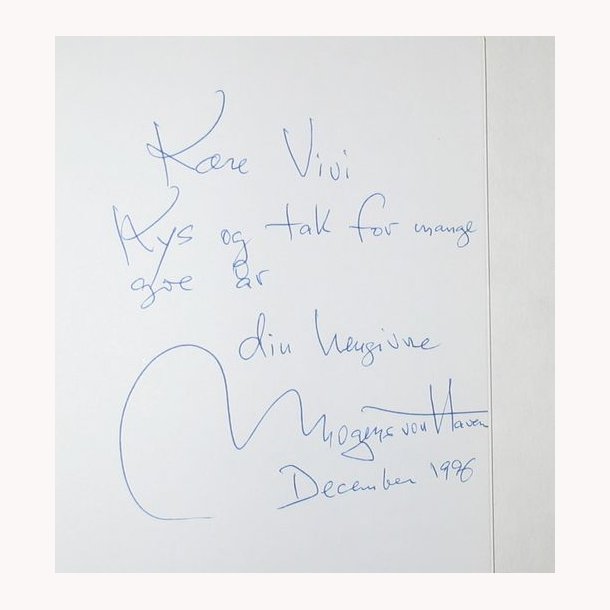 Kære Vivi
Kys og tak for mange
goe år
din hengivne
Mogens von Haven
December 1996